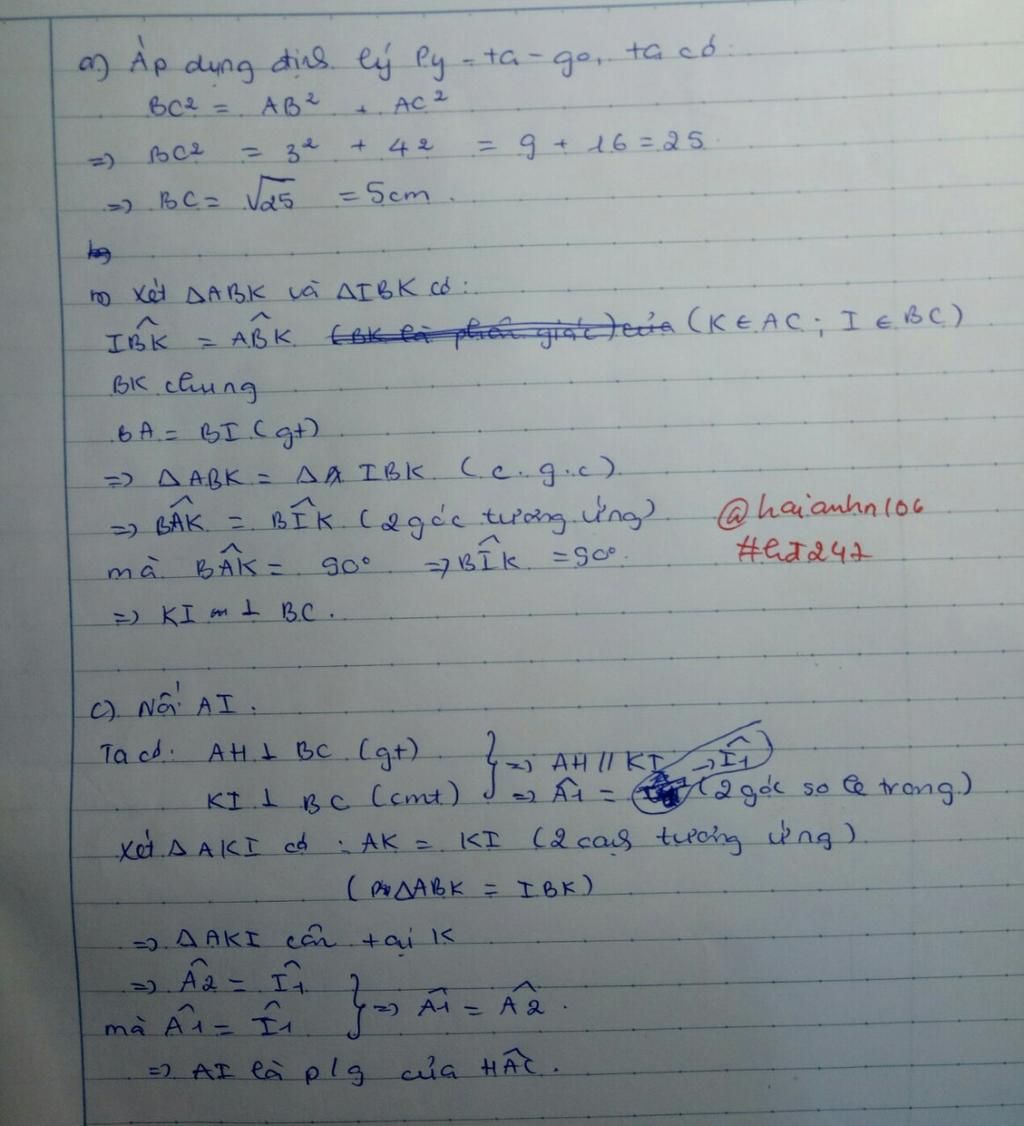 a) Áp dụng định lý Py-ta-go, ta có:
BC² = AB² + AC²
=> BC² = 3² + 4² = 9 + 16 = 25
=> BC = √25 = 5cm.
b) Xét ΔABK và ΔIBK có:
IB̂K = AB̂K (BK là phân giác) của (K ∈ AC; I ∈ BC)
BK chung
BA = BI (gt)
=> ΔABK = Δ IBK (c.g.c)
=> BÂK = BÎK (2 góc tương ứng)
@haianhn106
mà BÂK = 90° => BÎK = 90°.
=> KI ⊥ BC.
c) Nối AI.
Ta có: AH ⊥ BC (gt)
KI ⊥ BC (cmt)
} => AH // KI
=> Â1 = Î1 (2 góc so le trong)
Xét Δ AKI có: AK = KI (2 cạnh tương ứng)
(ΔABK = IBK)
=> Δ AKI cân tại K
=> Â2 = Î1
mà Â1 = Î1
} => Â1 = Â2.
=> AI là p/g của HÂC.